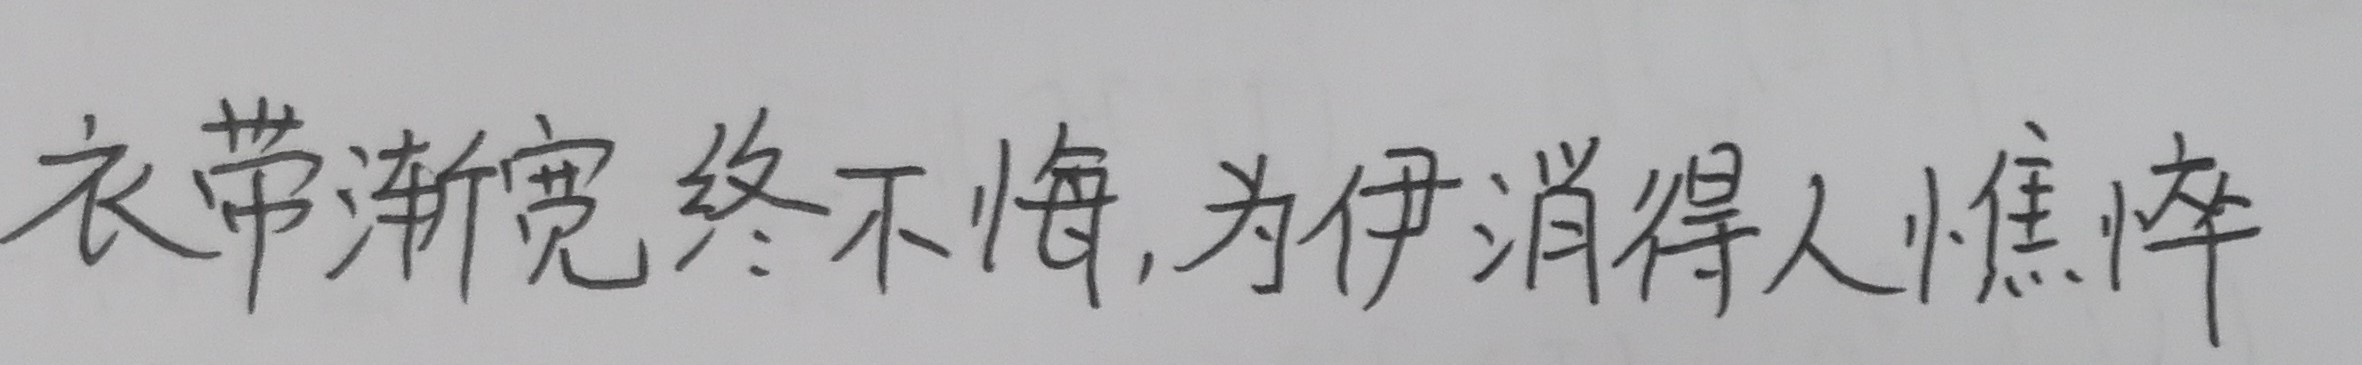 衣带渐宽终不悔,为伊消得人憔悴